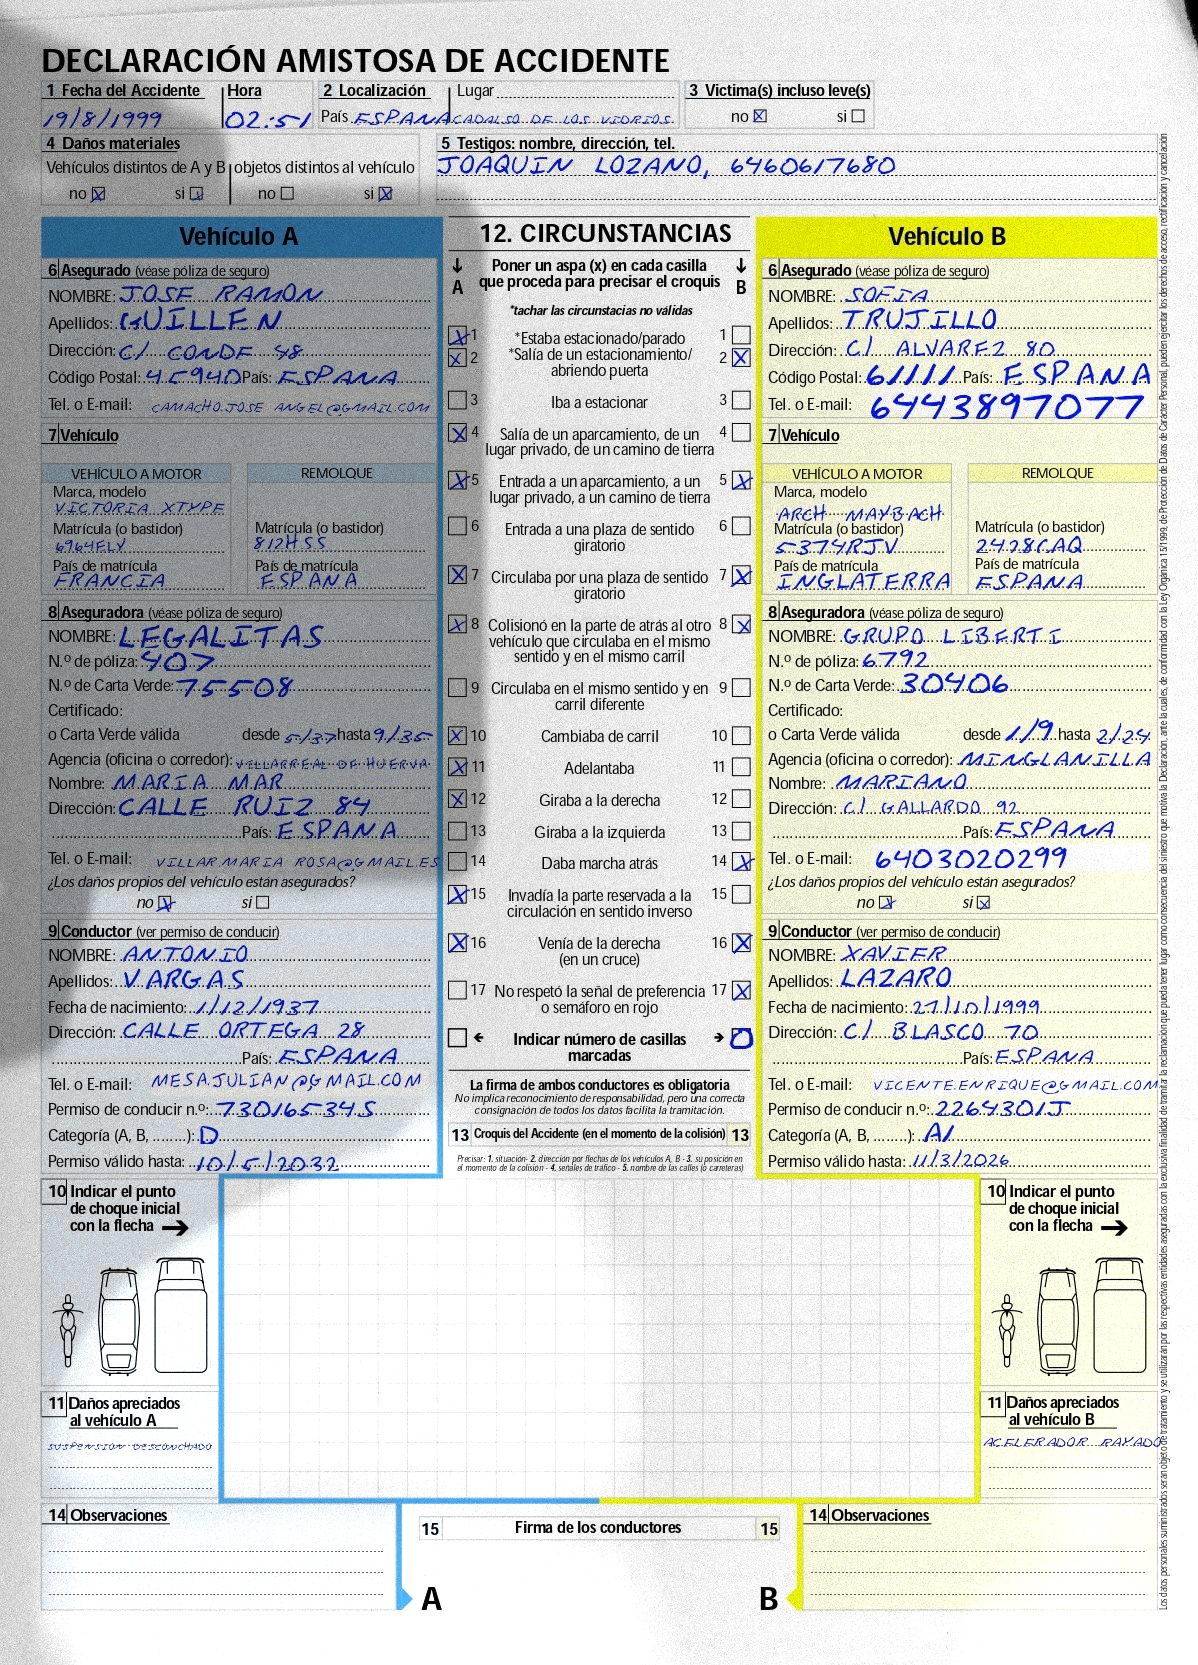 DECLARACIÓN AMISTOSA DE ACCIDENTE
1 Fecha del Accidente Hora 2 Localización Lugar 3 Victima(s) incluso leve(s)
19/8/1999 02:51 País ESPANA CADALSO DE LOS VIDRIOS no X si
4 Daños materiales
Vehículos distintos de A y B objetos distintos al vehículo
no X si X no si X
5 Testigos: nombre, dirección, tel.
JOAQUIN LOZANO, 6460617680
Vehículo A
6 Asegurado (véase póliza de seguro)
NOMBRE: JOSE RAMON
Apellidos: GUILLEN
Dirección: C/ CONDE 48
Código Postal: 45940 País: ESPANA
Tel. o E-mail: CAMACHO.JOSE ANGEL@GMAIL.COM
7 Vehículo
VEHÍCULO A MOTOR REMOLQUE
Marca, modelo
VICTORIA XTYPE
Matrícula (o bastidor) Matrícula (o bastidor)
6964FLV 812HSS
País de matrícula País de matrícula
FRANCIA ESPANA
8 Aseguradora (véase póliza de seguro)
NOMBRE: LEGALITAS
N.º de póliza: 407
N.º de Carta Verde: 75508
Certificado:
o Carta Verde válida desde 5/37 hasta 9/35
Agencia (oficina o corredor): VILLARREAL DE HUERVA
Nombre: MARIA MAR
Dirección: CALLE RUIZ 84
País: ESPANA
Tel. o E-mail: VILLAR.MARIA ROSA@GMAIL.ES
¿Los daños propios del vehículo están asegurados?
no X si
9 Conductor (ver permiso de conducir)
NOMBRE: ANTONIO
Apellidos: VARGAS
Fecha de nacimiento: 1/12/1937
Dirección: CALLE ORTEGA 28
País: ESPANA
Tel. o E-mail: MESA.JULIAN@GMAIL.COM
Permiso de conducir n.º: 73016534S
Categoría (A, B, ........): D
Permiso válido hasta: 10/5/2032
12. CIRCUNSTANCIAS
A Poner un aspa (x) en cada casilla B
que proceda para precisar el croquis
*tachar las circunstacias no válidas
X 1 *Estaba estacionado/parado 1
X 2 *Salía de un estacionamiento/ 2 X
abriendo puerta
3 Iba a estacionar 3
X 4 Salía de un aparcamiento, de un 4
lugar privado, de un camino de tierra
X 5 Entrada a un aparcamiento, a un 5 X
lugar privado, a un camino de tierra
6 Entrada a una plaza de sentido 6
giratorio
X 7 Circulaba por una plaza de sentido 7 X
giratorio
X 8 Colisionó en la parte de atrás al otro 8 X
vehículo que circulaba en el mismo
sentido y en el mismo carril
9 Circulaba en el mismo sentido y en 9
carril diferente
X 10 Cambiaba de carril 10
X 11 Adelantaba 11
X 12 Giraba a la derecha 12
13 Giraba a la izquierda 13
14 Daba marcha atrás 14 X
X 15 Invadía la parte reservada a la 15
circulación en sentido inverso
X 16 Venía de la derecha 16 X
(en un cruce)
17 No respetó la señal de preferencia 17 X
o semáforo en rojo
Indicar número de casillas 0
marcadas
La firma de ambos conductores es obligatoria
No implica reconocimiento de responsabilidad, pero una correcta
consignación de todos los datos facilita la tramitación.
13 Croquis del Accidente (en el momento de la colisión) 13
Precisar: 1. situación- 2. dirección por flechas de los vehículos A, B - 3. su posición en
el momento de la colisión - 4. señales de tráfico - 5. nombre de las calles (o carreteras)
Vehículo B
6 Asegurado (véase póliza de seguro)
NOMBRE: SOFIA
Apellidos: TRUJILLO
Dirección: C/ ALVAREZ 80
Código Postal: 61111 País: ESPANA
Tel. o E-mail: 6443897077
7 Vehículo
VEHÍCULO A MOTOR REMOLQUE
Marca, modelo
ARCH MAYBACH
Matrícula (o bastidor) Matrícula (o bastidor)
5374RJV 2428CAQ
País de matrícula País de matrícula
INGLATERRA ESPANA
8 Aseguradora (véase póliza de seguro)
NOMBRE: GRUPO LIBERTI
N.º de póliza: 6792
N.º de Carta Verde: 30406
Certificado:
o Carta Verde válida desde 1/19 hasta 2/24
Agencia (oficina o corredor): MINGLANILLA
Nombre: MARIANO
Dirección: C/ GALLARDO 92
País: ESPANA
Tel. o E-mail: 6403020299
¿Los daños propios del vehículo están asegurados?
no X si X
9 Conductor (ver permiso de conducir)
NOMBRE: XAVIER
Apellidos: LAZARO
Fecha de nacimiento: 27/10/1999
Dirección: C/ BLASCO 70
País: ESPANA
Tel. o E-mail: VICENTE.ENRIQUE@GMAIL.COM
Permiso de conducir n.º: 2264301J
Categoría (A, B, ........): A1
Permiso válido hasta: 11/3/2026
10 Indicar el punto
de choque inicial
con la flecha
11 Daños apreciados
al vehículo A
SUSPENSION DESCONCHADO
10 Indicar el punto
de choque inicial
con la flecha
11 Daños apreciados
al vehículo B
ACELERADOR RAYADO
14 Observaciones
15 Firma de los conductores 15
A B
14 Observaciones
Los datos personales suministrados serán objeto de tratamiento y se utilizarán por las respectivas entidades aseguradas con la exclusiva finalidad de tramitar la reclamación que pueda tener lugar como consecuencia del siniestro que motiva la Declaración, ante la cuales, de conformidad con la Ley Orgánica 15/1999, de Protección de Datos de Carácter Personal, pueden ejercitar los derechos de acceso, rectificación y cancelación